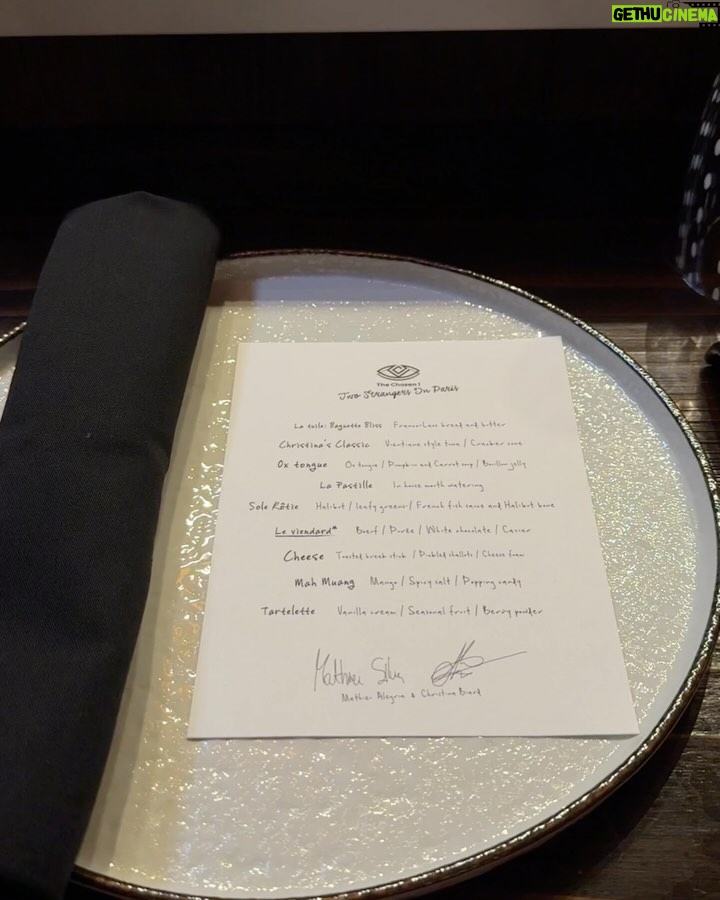 GETHUCINEMA
The Chosen 1
Two Strangers In Paris
La toile: Baguette Bliss Franco-Laos bread and butter
Christina's Classic Vientiane style tuna / Cracker cone
Ox tongue Ox tongue / Pumpkin and Carrot soup / Bouillon jelly
La Pastille In house mouth watering
Sole Rôtie Halibut / leafy greens / French fish sauce and Halibut bone
Le viendard* Beef / Purée / White chocolate / Caviar
Cheese Toasted bread stick / Pickled shallots / Cheese foam
Mah Muang Mango / Spicy salt / Popping candy
Tartelette Vanilla cream / Seasonal fruit / Berry powder
Mathieu Silva
Mathieu Alegria & Christina Biard